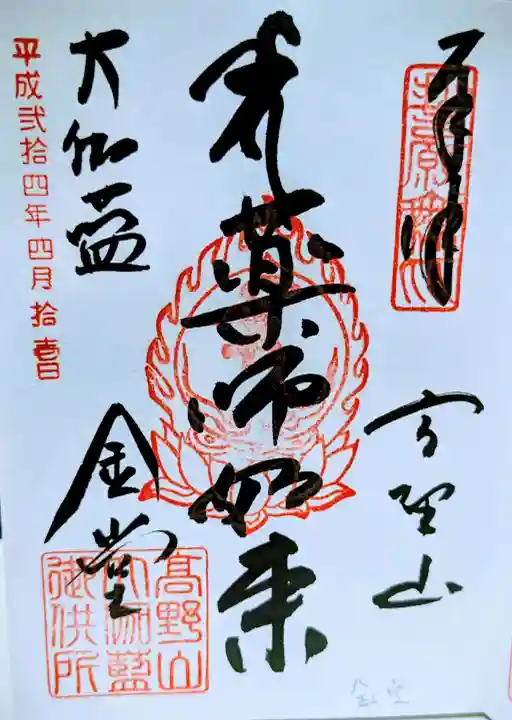 奉拝
高野山
薬師如来
大伽藍
金堂
平成弐拾四年四月拾壱日
高野山
大伽藍
御供所
金堂